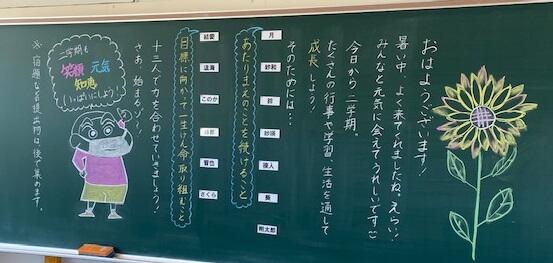 おはようございます！
暑い中、よく来てくれましたね。えらい！
みんなと元気に会えてうれしいです。
今日から二学期。
たくさんの行事や学習、生活を通して
成長しよう！
そのためには…
月
妙和
鈴
妙瑛
葵
翔太郎
あたりまえのことを続けること
結愛
このか
智也
さくら
目標に向かって一生けん命取り組むこと
十三人で力を合わせていきましょう！
さあ、始まるゾ！
二学期も
笑顔 元気
知恵
いっぱいにしよう！
※宿題など提出物は、後で集めます。